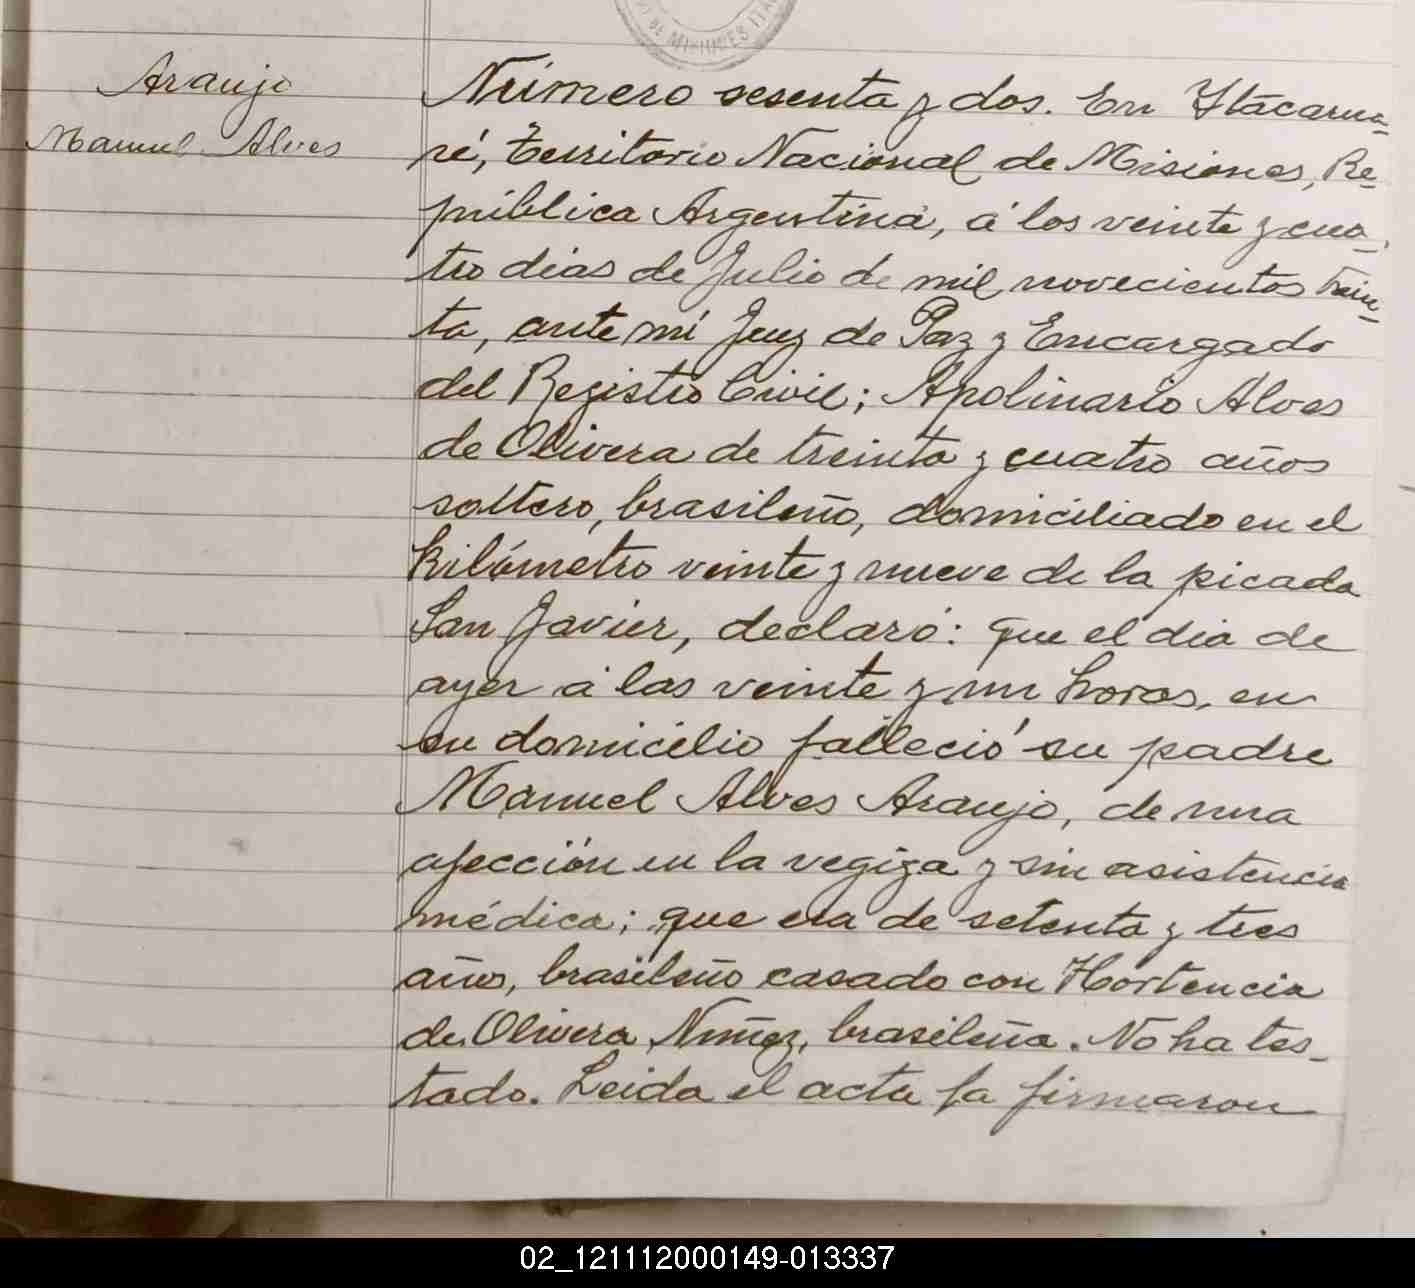 DE MISIONES ITA
Araujo
Manuel Alves
Número sesenta y dos. En Itacarua-
ré, Territorio Nacional de Misiones, Re-
pública Argentina, á los veinte y cua-
tro dias de Julio de mil novecientos trein-
ta, ante mí Juez de Paz y Encargado
del Registro Civil; Apolinario Alves
de Olivera de treinta y cuatro años
soltero, brasileño, domiciliado en el
kilómetro veinte y nueve de la picada
San Javier, declaró: que el dia de
ayer á las veinte y un horas, en
su domicilio falleció su padre
Manuel Alves Araujo, de una
afección en la vegiga y sin asistencia
médica; que era de setenta y tres
años, brasileño casado con Hortencia
de Olivera Nuñez, brasileña. No ha tes-
tado. Leida el acta la firmaron
02_121112000149-013337